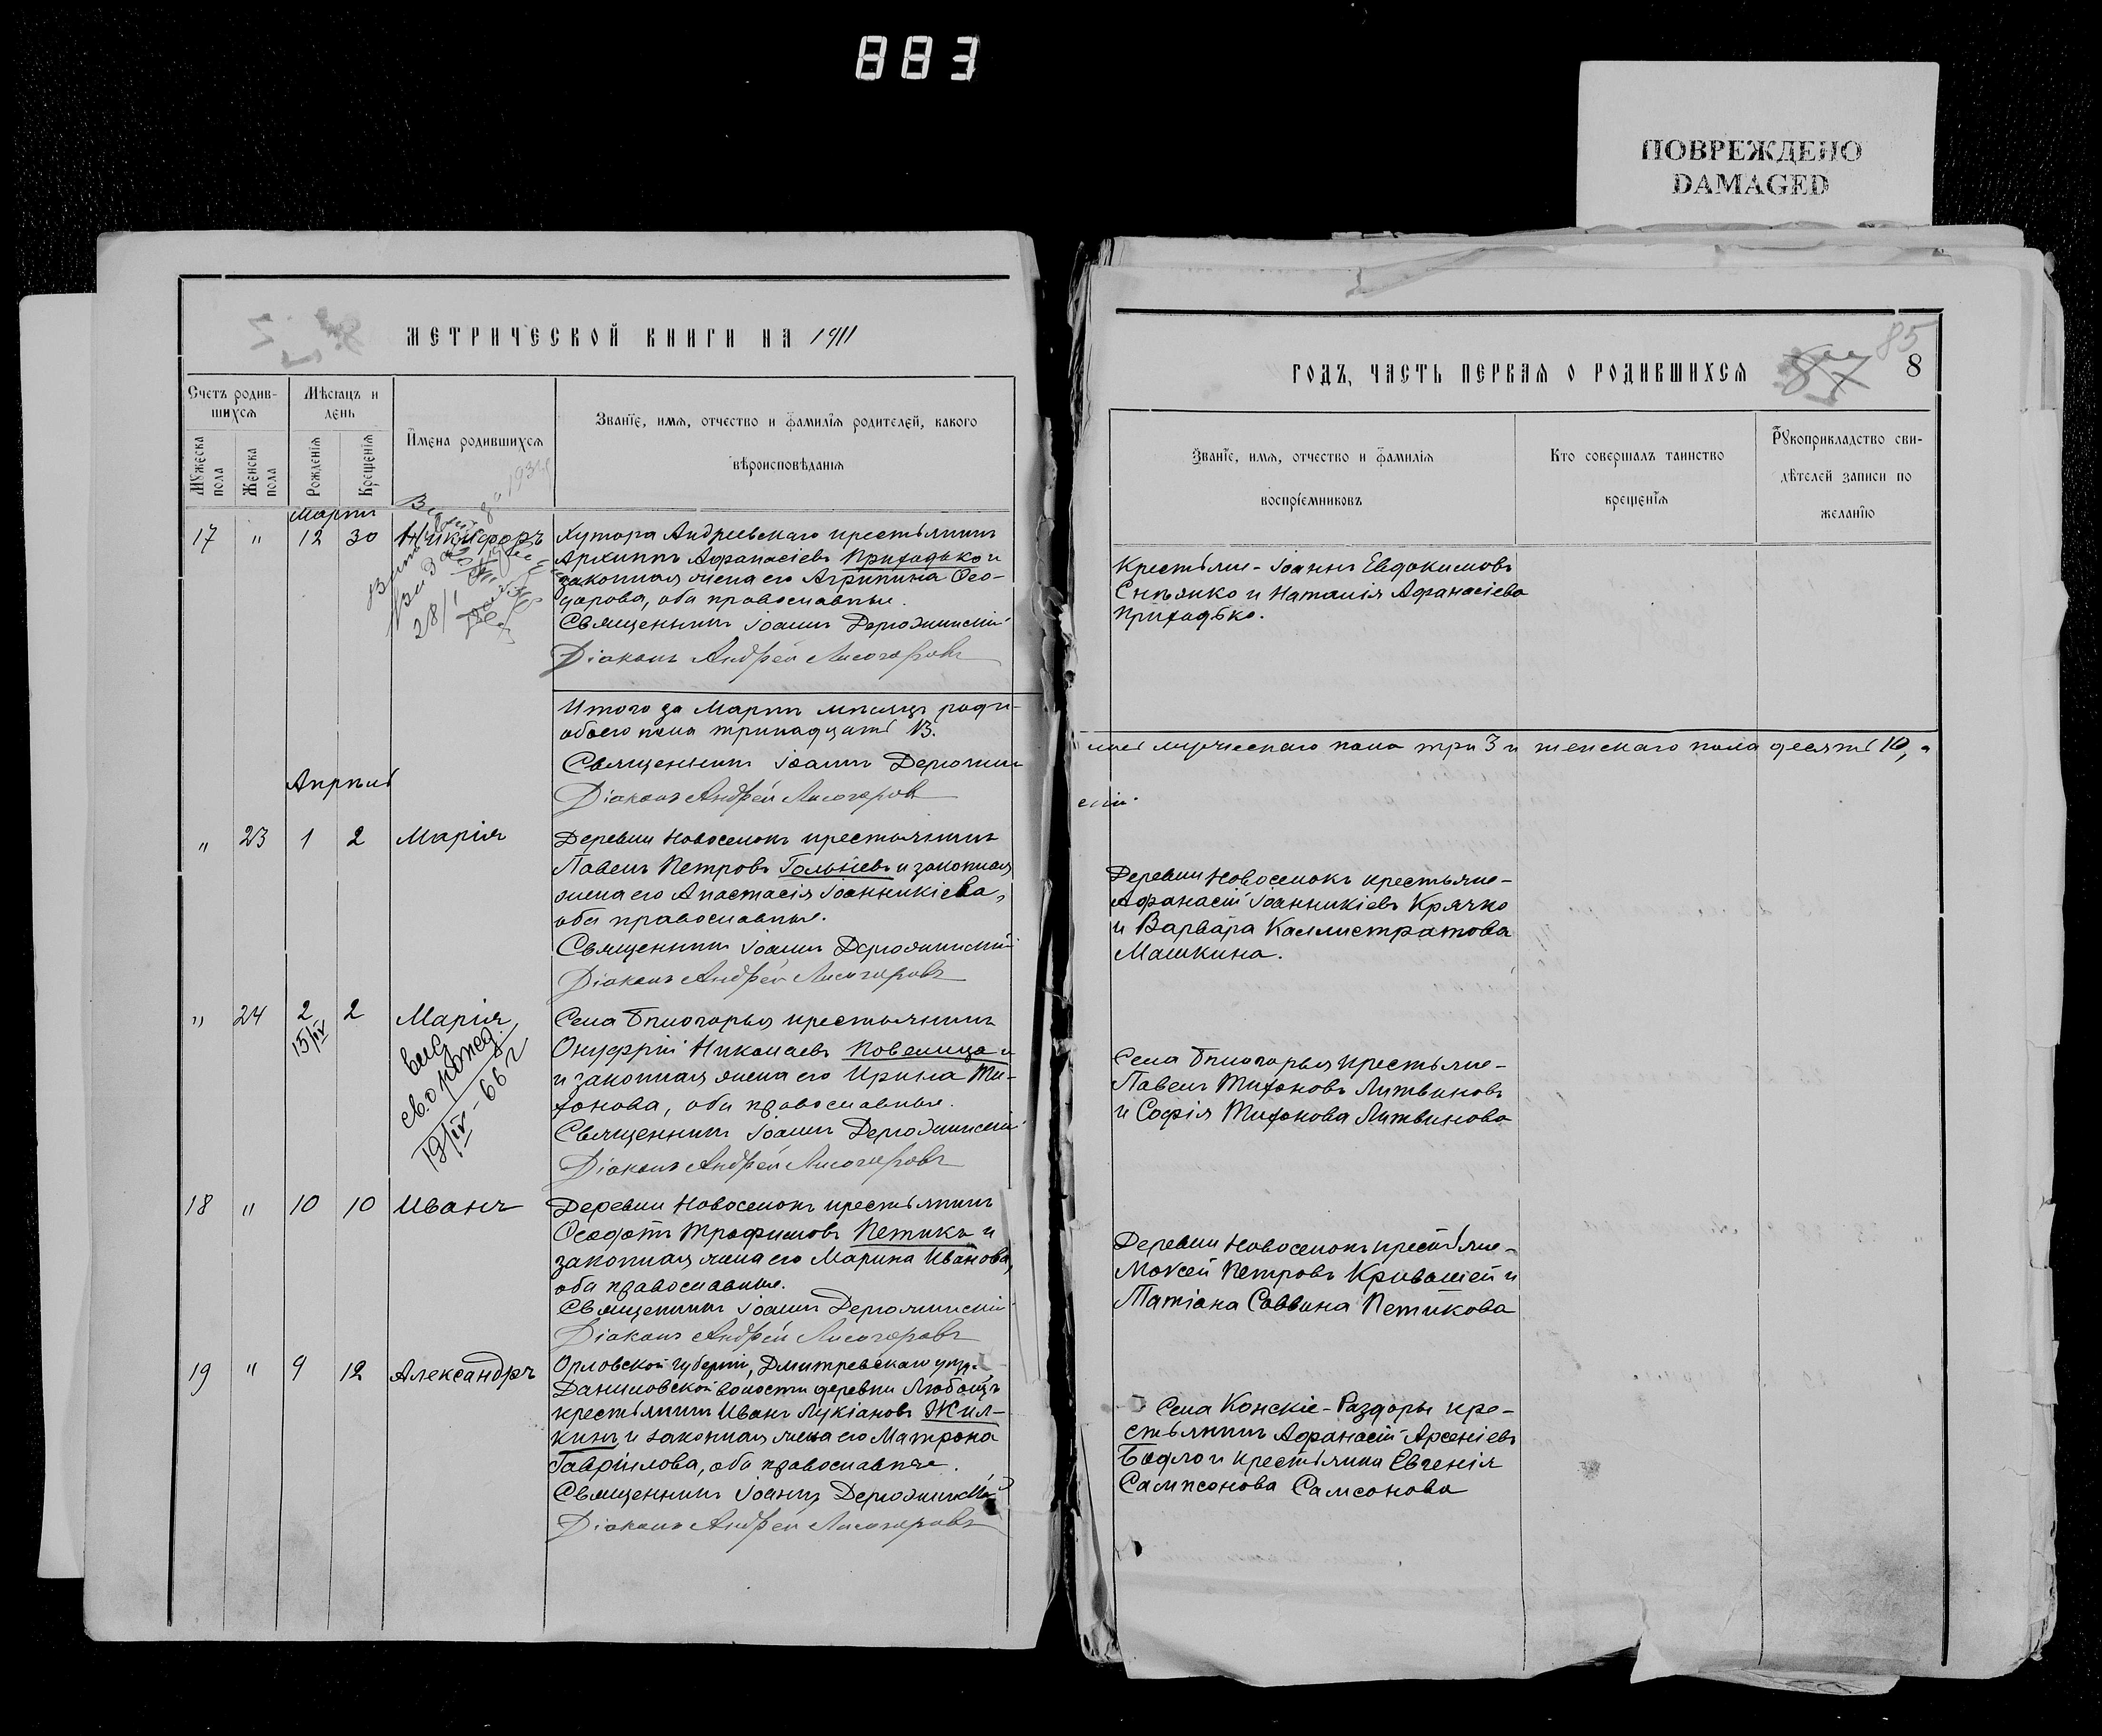 883
ПОВРЕЖДЕНО
DAMAGED
МЕТРИЧЕСКОЙ КНИГИ НА 1911
Счетъ родив-
шихся
Мѣсяцъ и
день
Имена родившихся
Званіе, имя, отчество и фамилія родителей, какого
вѣроисповѣданія
Мужеска пола
Женска пола
Рожденія
Крещенія
Мартъ
17 " 12 30 Никифоръ
Хутора Андреевскаго крестьянинъ
Архиппъ Афанасіевъ Приходько и
законная жена его Агрипина Ѳео-
дорова, оба православные.
Священникъ Іоаннъ
Діаконъ Андрей Лисогоровъ
28/I
Итого за Мартъ мѣсяцъ роди-
обоего пола тринадцать 13.
Священникъ Іоаннъ
Діаконъ Андрей Лисогоровъ
Апрѣль
" 23 1 2 Марія
Деревни Новоселокъ крестьянинъ
Павелъ Петровъ Гольневъ и законная
жена его Анастасія Іоанникіева,
оба православные.
Священникъ Іоаннъ
Діаконъ Андрей Лисогоровъ
" 24 2 2 Марія
15/IV
выс
св. о рожд.
19/IV - 66 г
Села Бѣлогорья крестьянинъ
Онуфрій Николаевъ Повелица и
и законная жена его Ирина Ти-
хонова, оба православные.
Священникъ Іоаннъ
Діаконъ Андрей Лисогоровъ
18 " 10 10 Иванъ
Деревни Новоселокъ крестьянинъ
Ѳеодотъ Трофимовъ Петикъ и
законная жена его Марина Иванова,
оба православные.
Священникъ Іоаннъ
Діаконъ Андрей Лисогоровъ
19 " 9 12 Александръ
Орловской губерніи, Дмитревскаго уѣзд.
Даниловской волости деревни
крестьянинъ Иванъ Лукіановъ Жил-
кинъ и законная жена его Матрона
Гавріилова, оба православные.
Священникъ Іоаннъ
Діаконъ Андрей Лисогоровъ
85
87
8
ГОДЪ, ЧАСТЬ ПЕРВАЯ О РОДИВШИХСЯ
Званіе, имя, отчество и фамилія
воспріемниковъ
Кто совершалъ таинство
крещенія
Рукоприкладство сви-
дѣтелей записи по
желанію
Крестьяне - Іоаннъ Евдокимовъ
и Наталія Афанасіева
Приходько.
лось мужескаго пола три 3 и женскаго пола десять 10, а
скій.
Деревни Новоселокъ крестьяне -
Афанасій Іоанникіевъ Крячко
и Варвара Каллистратова
Машкина.
Села Бѣлогорья крестьяне -
Павелъ Тихоновъ Литвиновъ
и Софія Тихонова Литвинова
Деревни Новоселокъ крестьяне -
Моѵсей Петровъ Кривошей и
Татіана Саввина Петикова
Села Конскіе-Раздоры кре-
стьянинъ Афанасій Арсеніевъ
Бадло и крестьянка Евгенія
Сампсонова Самсонова